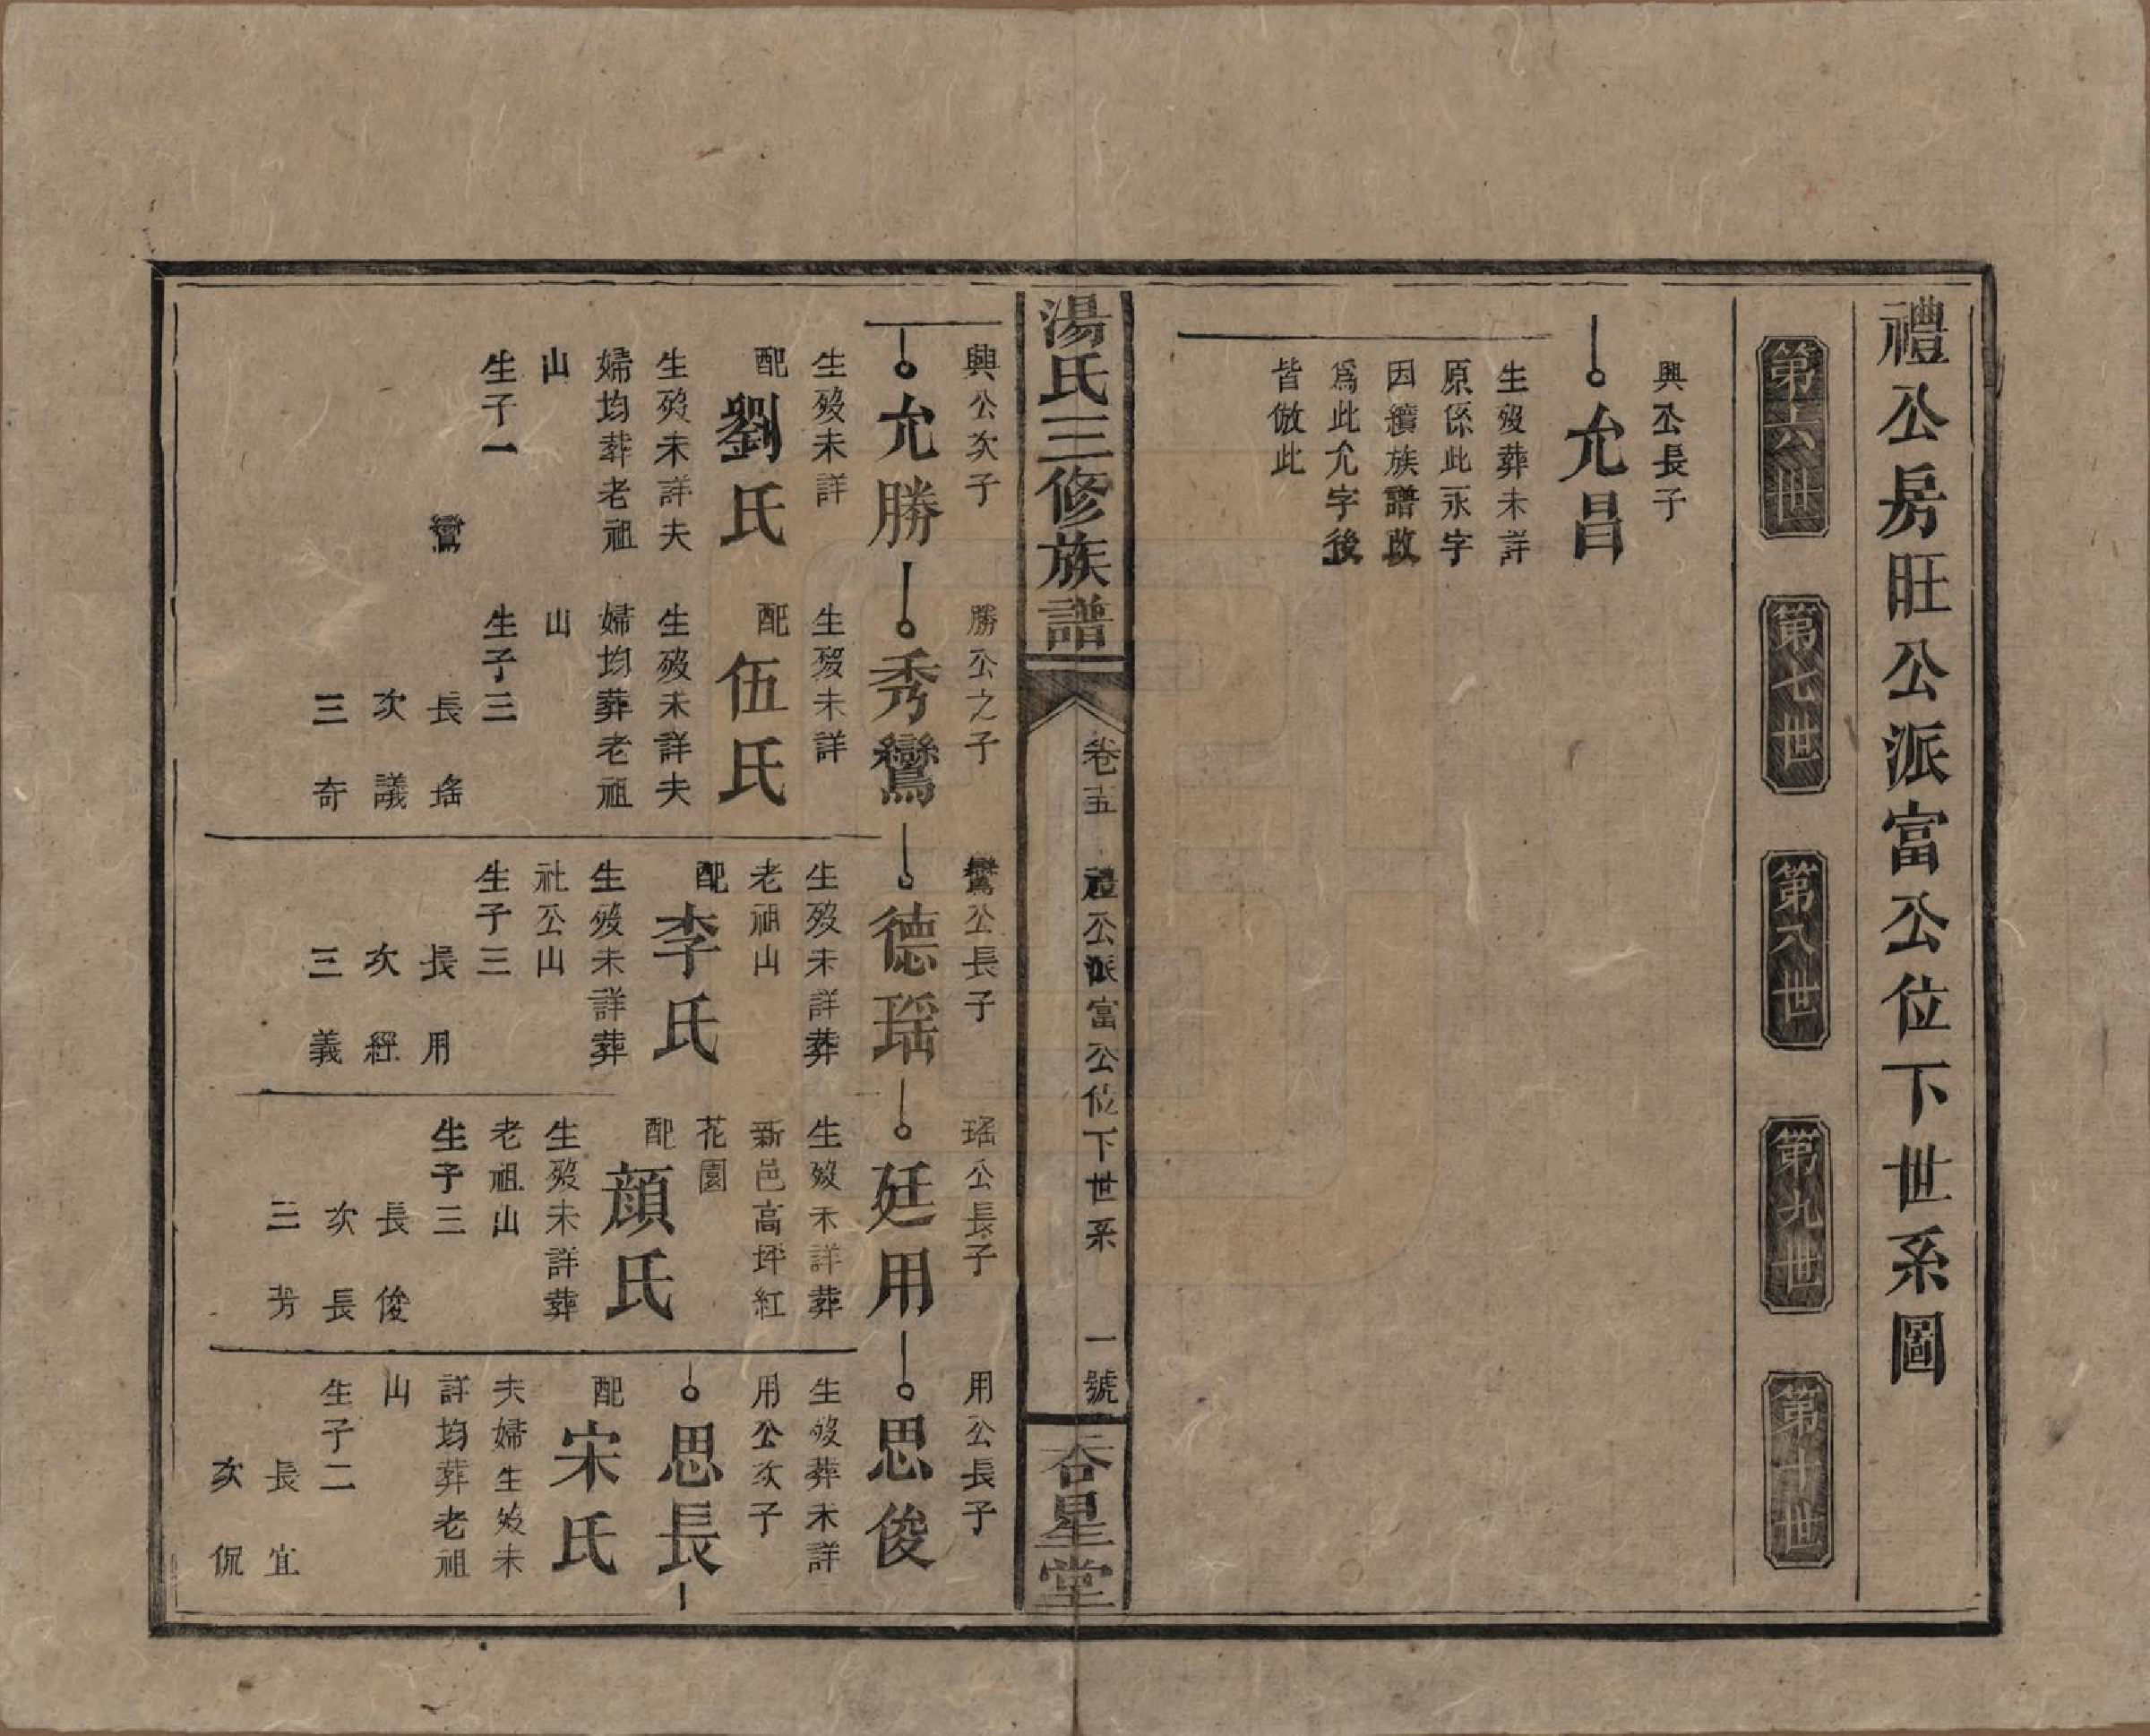 禮公房旺公派富公位下世系圖
第六世
第七世
第八世
第九世
第十世
興公長子
允昌
生歿葬未詳
原係此永字
因續族譜改
爲此允字後
皆倣此
湯氏三修族譜
卷五
禮公派富公位下世系
一號
杏星堂
興公次子
允勝
生歿未詳
配劉氏
生歿未詳夫
婦均葬老祖
山
生子一
鸞
勝公之子
秀鸞
生歿未詳
配伍氏
生歿未詳夫
婦均葬老祖
山
生子三
長瑤
次議
三奇
鸞公長子
德瑤
生歿未詳葬
老祖山
配李氏
生歿未詳葬
社公山
生子三
長用
次經
三義
瑤公長子
廷用
生歿未詳葬
新邑高坪紅
花園
配顔氏
生歿未詳葬
老祖山
生子三
長俊
次長
三芳
用公長子
思俊
生歿葬未詳
用公次子
思長
配宋氏
夫婦生歿未
詳均葬老祖
山
生子二
長宜
次侃